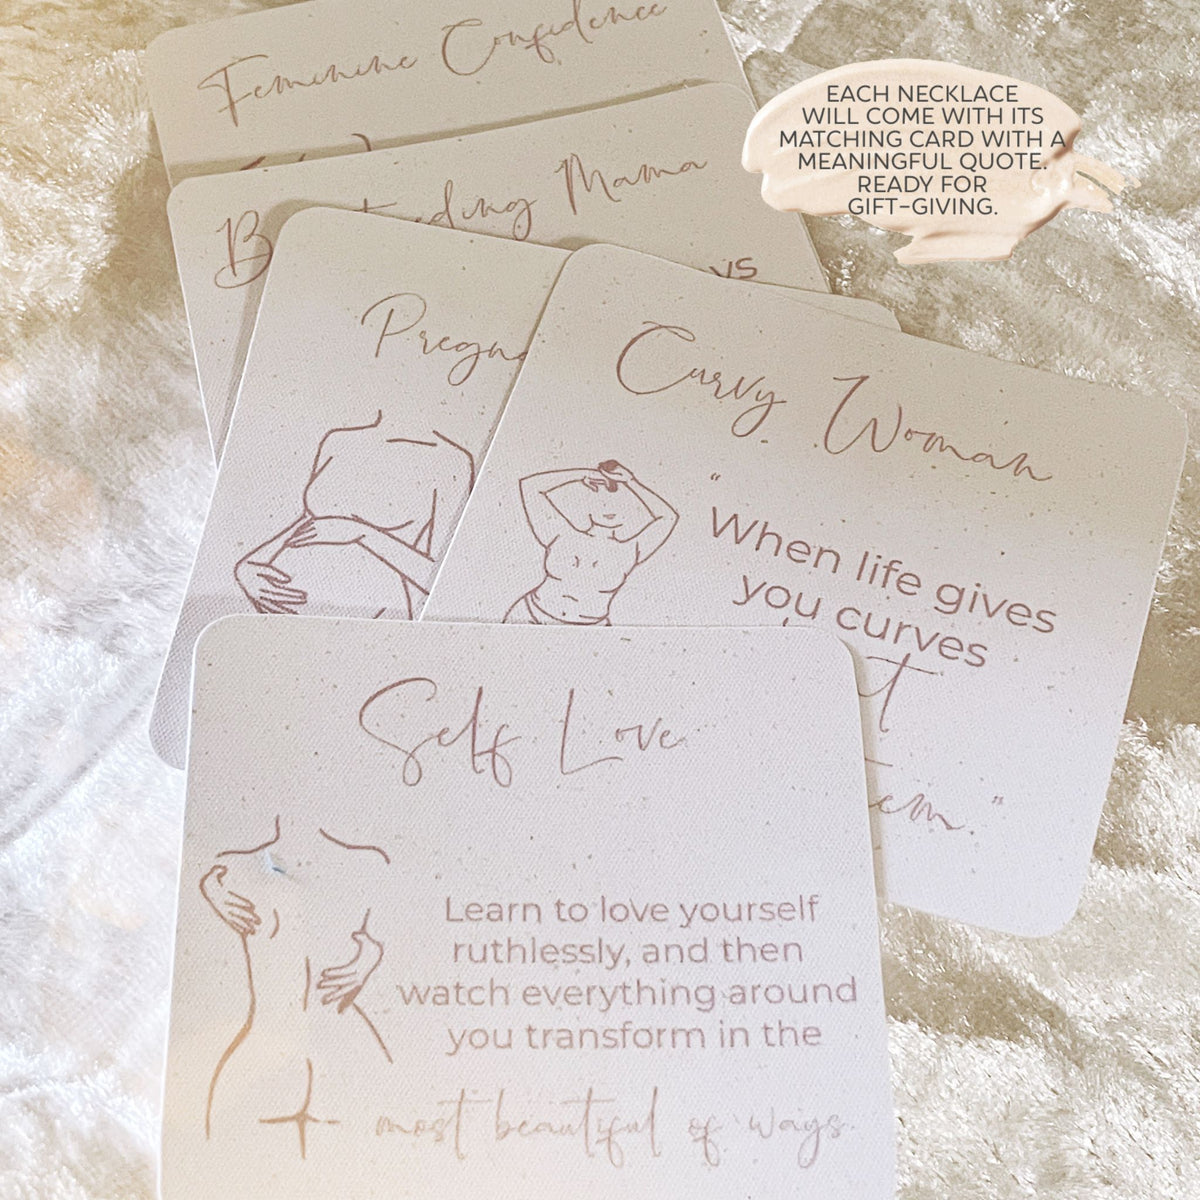 Feminine Confidence
EACH NECKLACE
WILL COME WITH ITS
MATCHING CARD WITH A
MEANINGFUL QUOTE.
READY FOR
GIFT-GIVING.
Mama
Curvy Woman
"When life gives
you curves
Self Love
Learn to love yourself
ruthlessly, and then
watch everything around
you transform in the
most beautiful of ways.